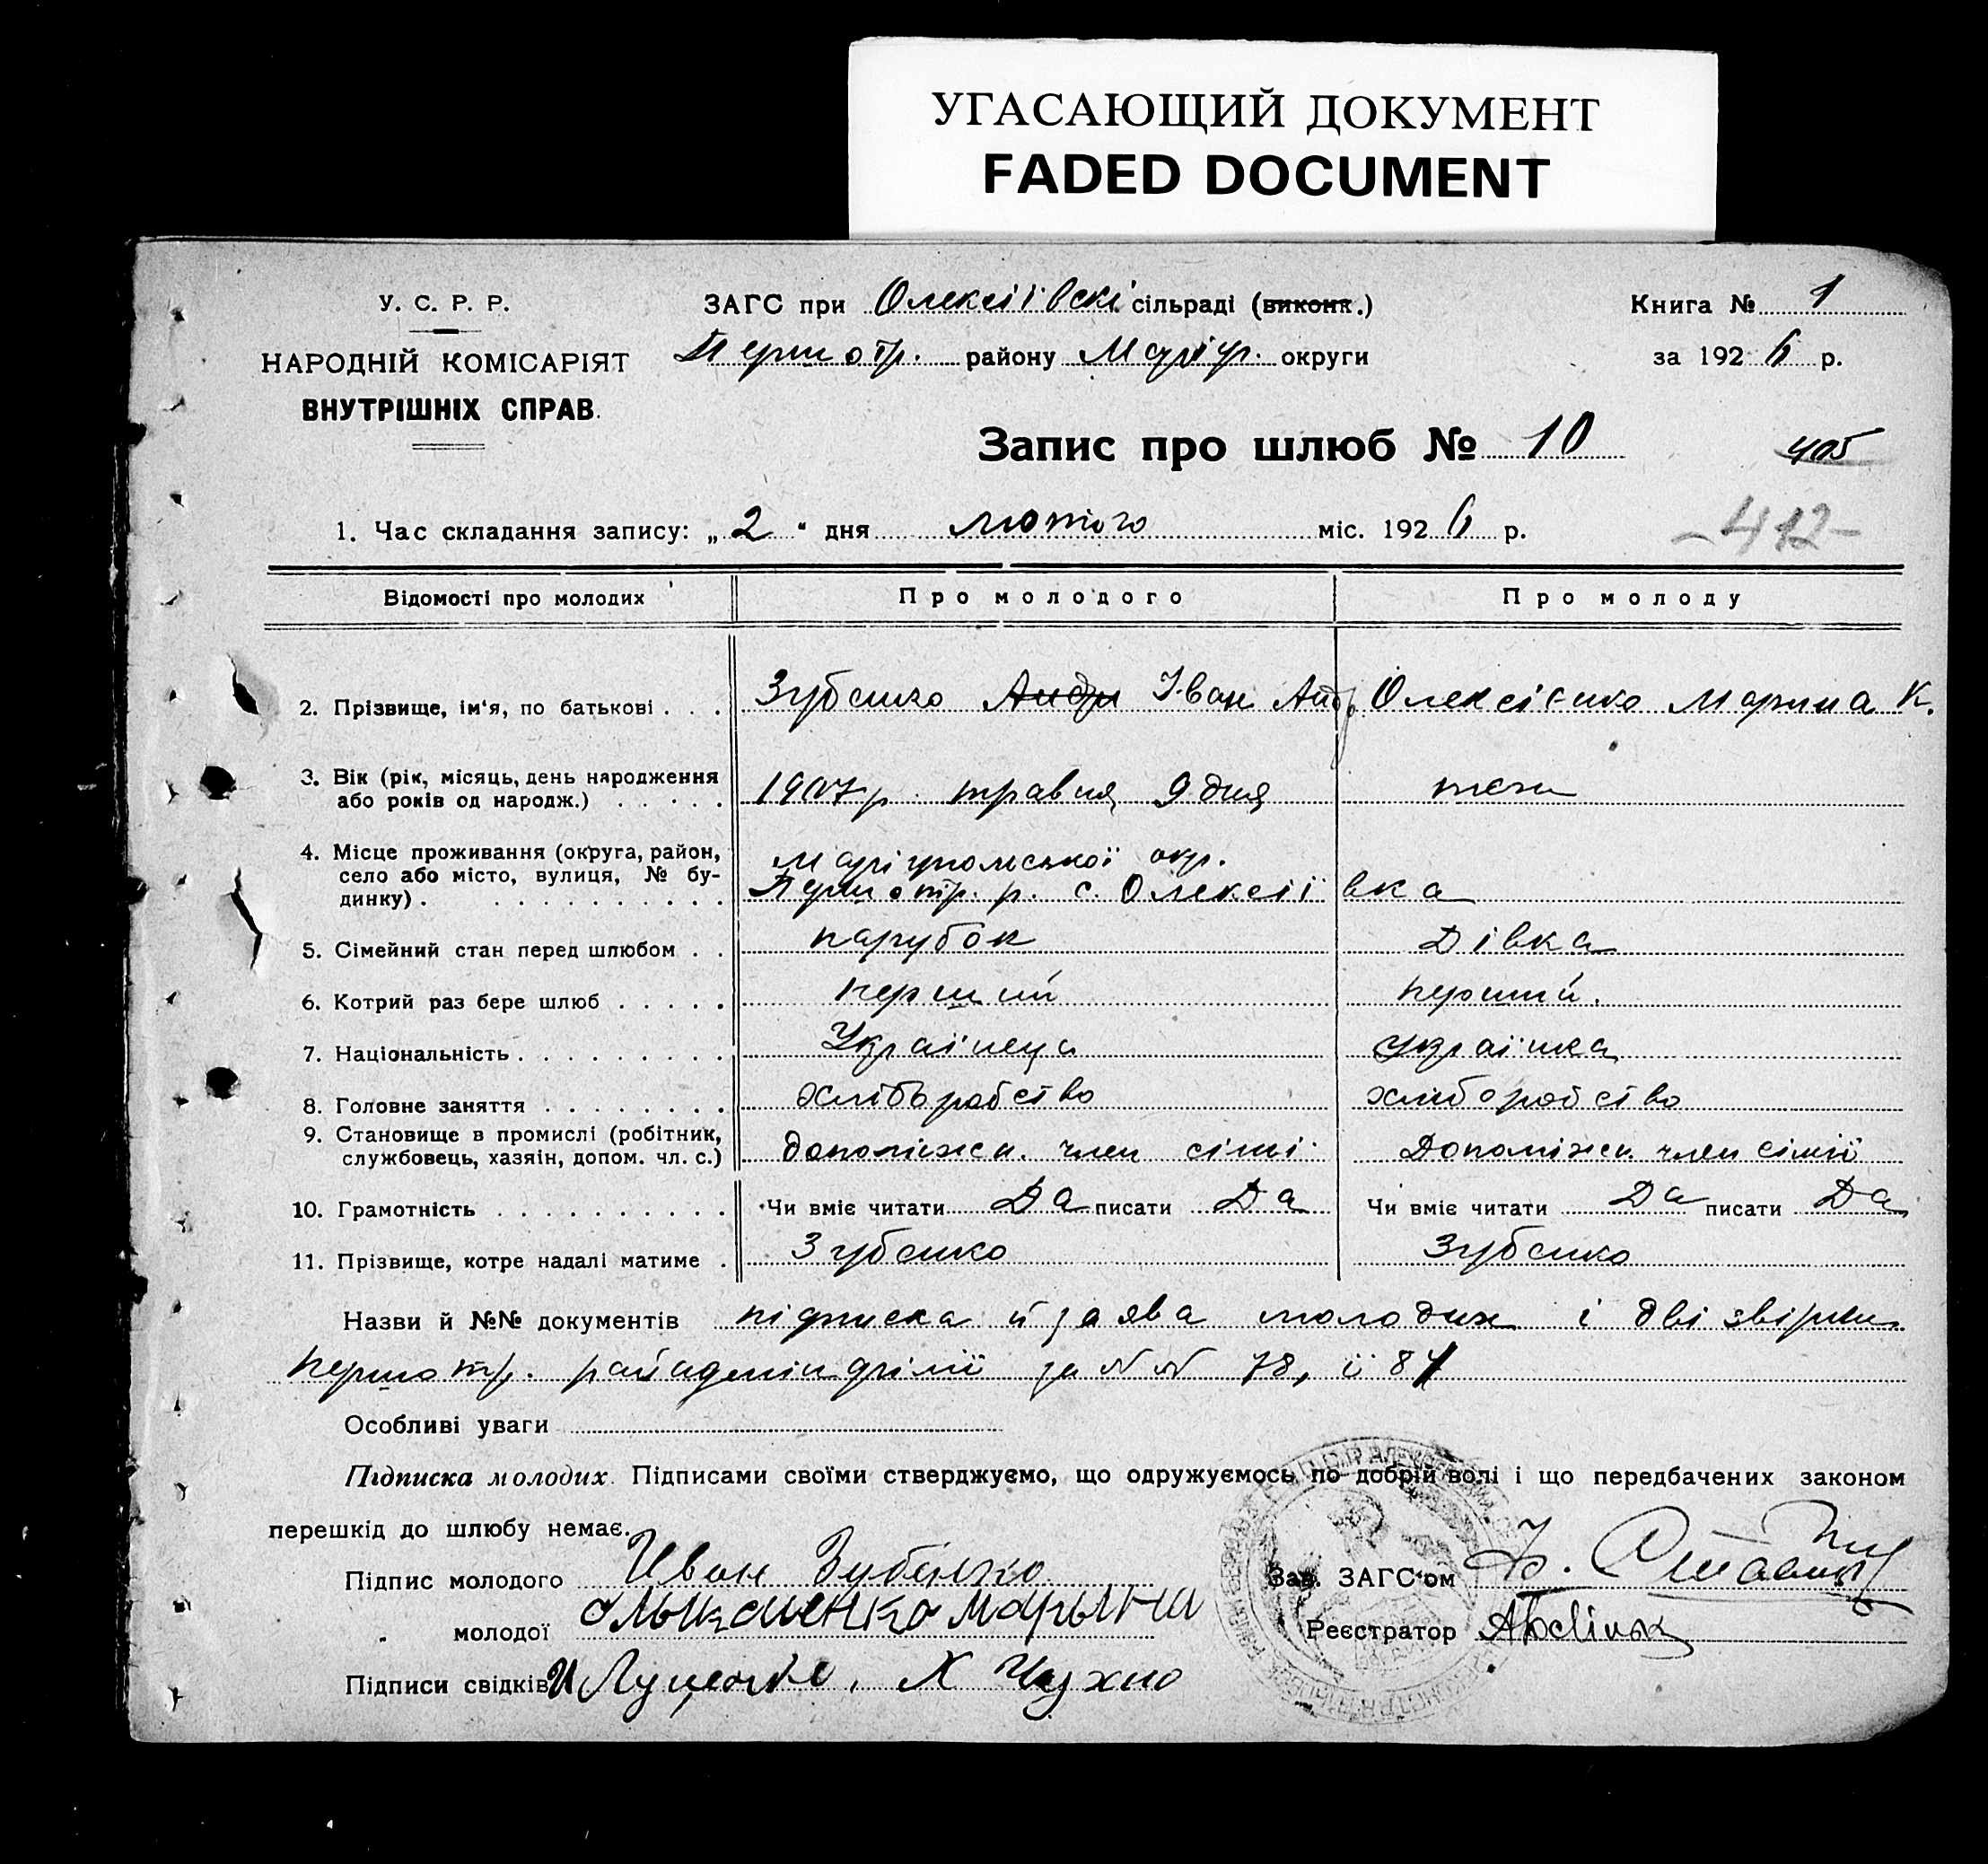 УГАСАЮЩИЙ ДОКУМЕНТ
FADED DOCUMENT
У. С. Р. Р.
НАРОДНІЙ КОМІСАРІЯТ
ВНУТРІШНІХ СПРАВ.
ЗАГС при Олексіївскі сільраді (виконк.)
Першотр. району Маріуп. округи
Книга № 1
за 1926 р.
Запис про шлюб № 10
405
-412-
1. Час складання запису: „2“ дня лютого міс. 1926 р.
Відомості про молодих Про молодого Про молоду
2. Прізвище, ім'я, по батькові . . . Зубенко Андр Іван Андр Олексієнко Марина К.
3. Вік (рік, місяць, день народження
або років од народж.) . . . . . 1907 р. травня 9 дня
4. Місце проживання (округа, район, Маріупольської окр.
село або місто, вулиця, № бу- Першотр. р. с. Олексіївка
динку) . . . . . . . . . .
5. Сімейний стан перед шлюбом . . парубок Дівка
6. Котрий раз бере шлюб . . . . . перший перший.
7. Національність . . . . . . . . . Українець українка
8. Головне заняття . . . . . . . . хліборобство хліборобство
9. Становище в промислі (робітник,
службовець, хазяїн, допом. чл. с.) допоміжн. член сімї Допоміжн. член сімїї
10. Грамотність . . . . . . . . . . Чи вміє читати Да писати Да Чи вміє читати Да писати Да
11. Прізвище, котре надалі матиме . Зубенко Зубенко
Назви й №№ документів підписка й заява молодих і дві
першотр. за NN 78, й 84
Особливі уваги
Підписка молодих. Підписами своїми стверджуємо, що одружуємось по добрій волі і що передбачених законом
перешкід до шлюбу немає.
Підпис молодого Иван Зубенко
Зав. ЗАГС'ом
" молодої Марына
Реєстратор
Підписи свідків И Луценко, К Чухно